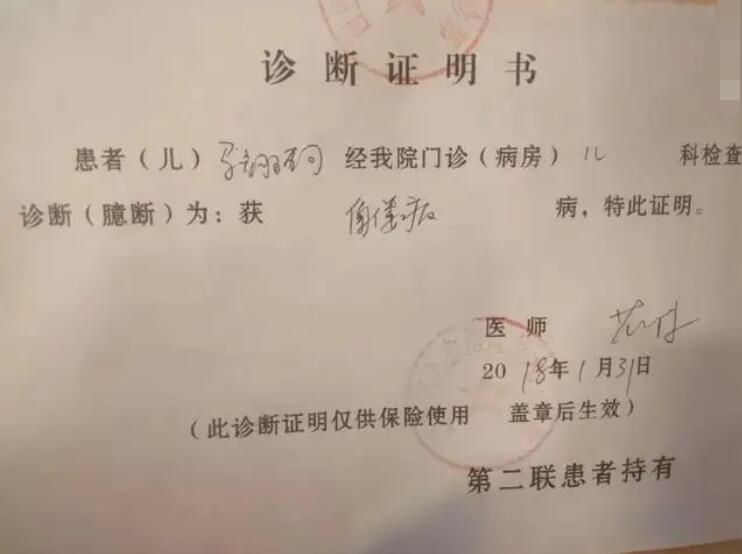 诊断证明书
患者（儿） 经我院门诊（病房）儿 科检查
诊断（臆断）为：获 佝偻病 病，特此证明。
医师
2018年1月31日
（此诊断证明仅供保险使用 盖章后生效）
第二联患者持有